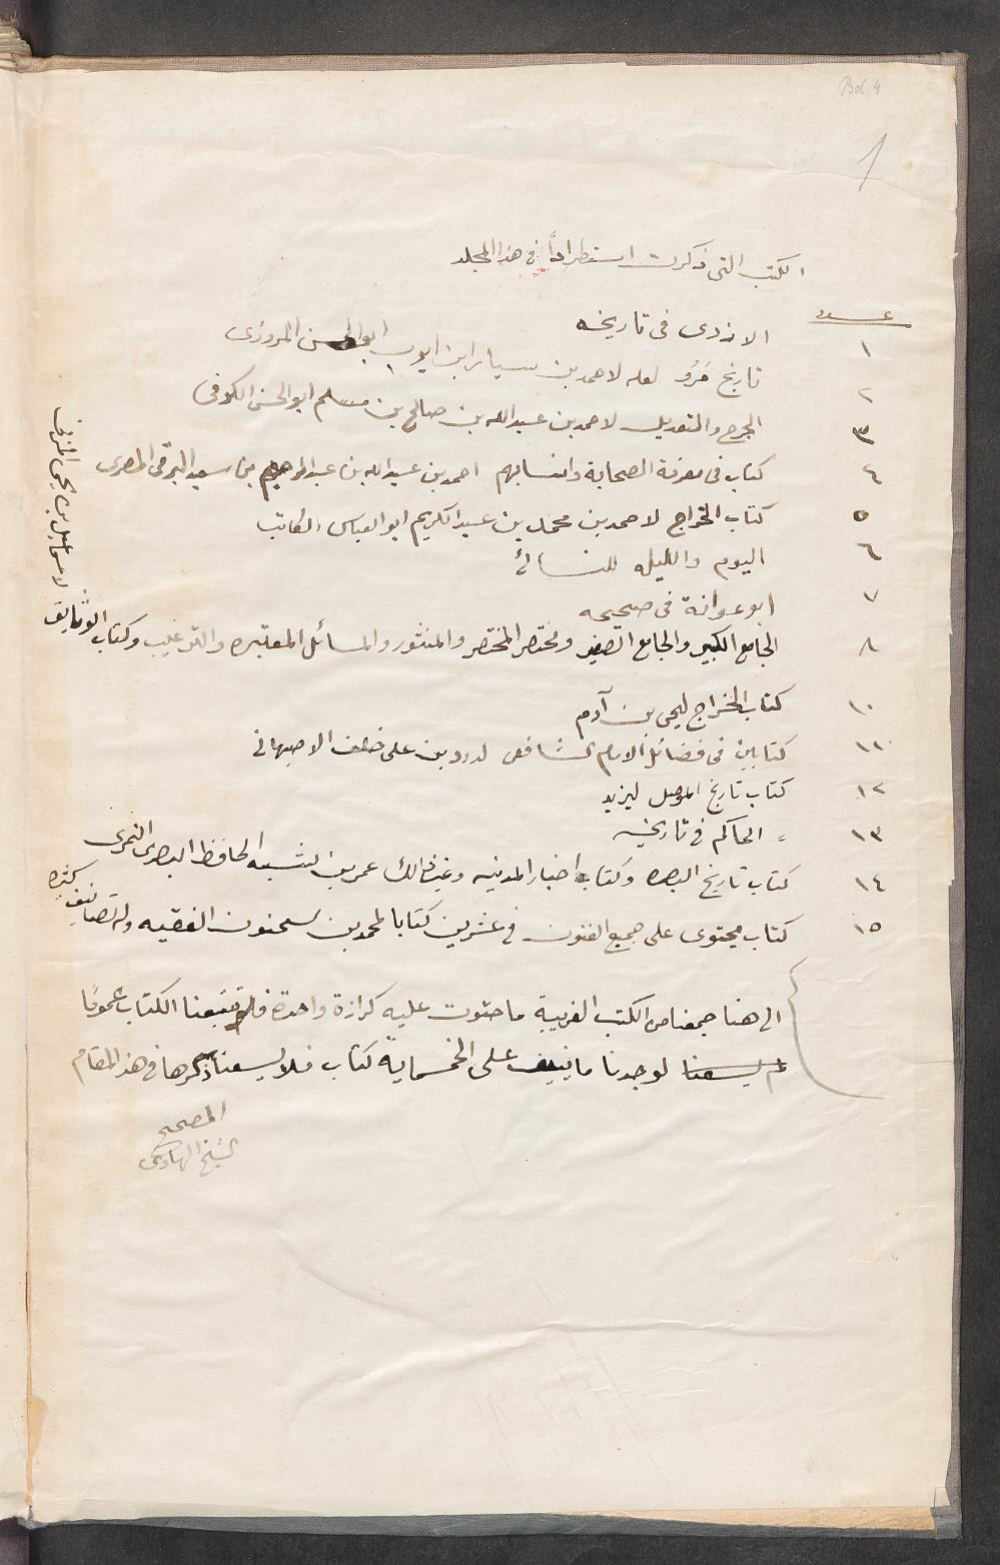 Bd. 4
1
الكتب التى ذكرت استطراداً فى هذا المجلد
عدد
١ الازدى فى تاريخه
٢ تاريخ مَرْو لعله لاحمد بن سيار ابن ايوب ابو الحسن المروزى
٣ الجرح والتعديل لاحمد بن عبد الله بن صالح بن مسلم ابو الحسن الكوفى
٤ كتاب فى معرفة الصحابة وانسابهم احمد بن عبد الله بن عبد الرحيم بن سعيد البرقى المصرى
٥ كتاب الخراج لاحمد بن محمد بن عبد الكريم ابو العباس الكاتب
٦ اليوم والليله للنسائى
٧ ابو عوانة فى صحيحه
٨ الجامع الكبير والجامع الصغير ومختصر المختصر والمنثور والمسائل المعتبره والترغيب وكتاب الوثايق
لاسماعيل بن يحيى المزنى
١٠ كتاب الخراج ليحيى بن آدم
١١ كتابين فى فضائل الامام الشافعى لدود بن على خلف الاصبهانى
١٢ كتاب تاريخ الموصل ليزيد
١٣ الحاكم فى تاريخه
١٤ كتاب تاريخ البصره وكتاب اخبار المدينه وغير ذالك عمر بن شبه الحافظ البصرى النمرى
١٥ كتاب يحتوى على جميع الفنون فى عشرين كتابا لمحمد بن سحنون الفقيه وله تصانيف كثيره
الى هنا جمعنا من الكتب الغريبة ما حتوت عليه كرازة واحدة فلو تتبعنا الكتاب عمومًا
لم يسعنا لوجدنا ما ينيف على الخمسماية كتاب فلا يسعنا ذكرها فى هذ المقام
المصحح
الشيخ